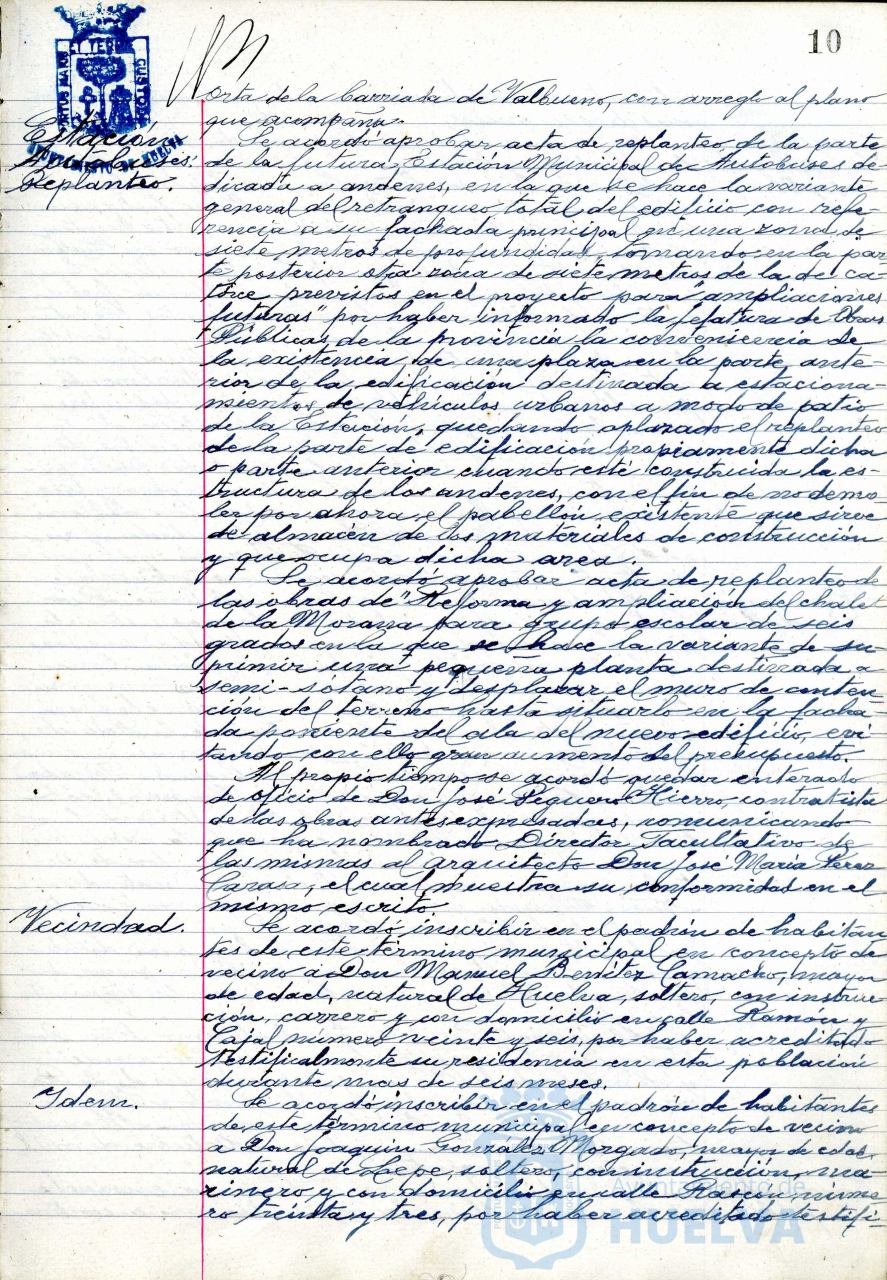 10
PORTUS MARIS ET TERRÆ CUSTODIA
AYUNTAMIENTO DE HUELVA
orta de la barriada de Valbueno, con arreglo al plano
que acompaña.
Estación
Autobuses.
Replanteo.
Se acordó aprobar acta de replanteo de la parte
de la futura Estación Municipal de Autobuses de-
dicada a andenes, en la que se hace la variante
general del retranqueo total del edificio con refe-
rencia a su fachada principal en una zona de
siete metros de profundidad, tomando en la par-
te posterior otra zona de siete metros de la de ca-
torce previstos en el proyecto para "ampliaciones
futuras" por haber informado la Jefatura de Obras
Públicas de la provincia la conveniencia de
la existencia de una plaza en la parte ante-
rior de la edificación destinada a estaciona-
mientos de vehículos urbanos a modo de patio
de la Estación, quedando aplazado el replanteo
de la parte de edificación propiamente dicha
o parte anterior cuando esté construida la es-
tructura de los andenes, con el fin de no demo-
ler por ahora el pabellón existente que sirve
de almacén de los materiales de construcción
y que ocupa dicha area.
Se acordó aprobar acta de replanteo de
las obras de "Reforma y ampliación del chalet
de la Morana para grupo escolar de seis
grados en la que se hace la variante de su-
primir una pequeña planta destinada a
semi-sótano y desplazar el muro de conten-
ción del terreno hasta situarlo en la facha-
da poniente del ala del nuevo edificio, evi-
tando con ello gran aumento del presupuesto.
Al propio tiempo se acordó quedar enterado
de oficio de Don José Peguero Hierro, contratista
de las obras antes expresadas, comunicando
que ha nombrado Director Facultativo de
las mismas al arquitecto Don José María Pérez
Carasa, el cual muestra su conformidad en el
mismo escrito.
Vecindad.
Se acordó inscribir en el padrón de habitan-
tes de este término municipal en concepto de
vecino a Don Manuel Benítez Camacho, mayor
de edad, natural de Huelva, soltero, con instruc-
ción, carrero y con domicilio en calle Ramón y
Cajal número veinte y seis, por haber acreditado
testificalmente su residencia en esta población
durante mas de seis meses.
Idem.
Se acordó inscribir en el padrón de habitantes
de este término municipal en concepto de vecino
a Don Joaquín González Morgado, mayor de edad,
natural de Lepe, soltero, con instrucción, ma-
rinero y con domicilio en calle Rascón, núme-
ro treinta y tres, por haber acreditado testifi-
Ayuntamiento de
HUELVA